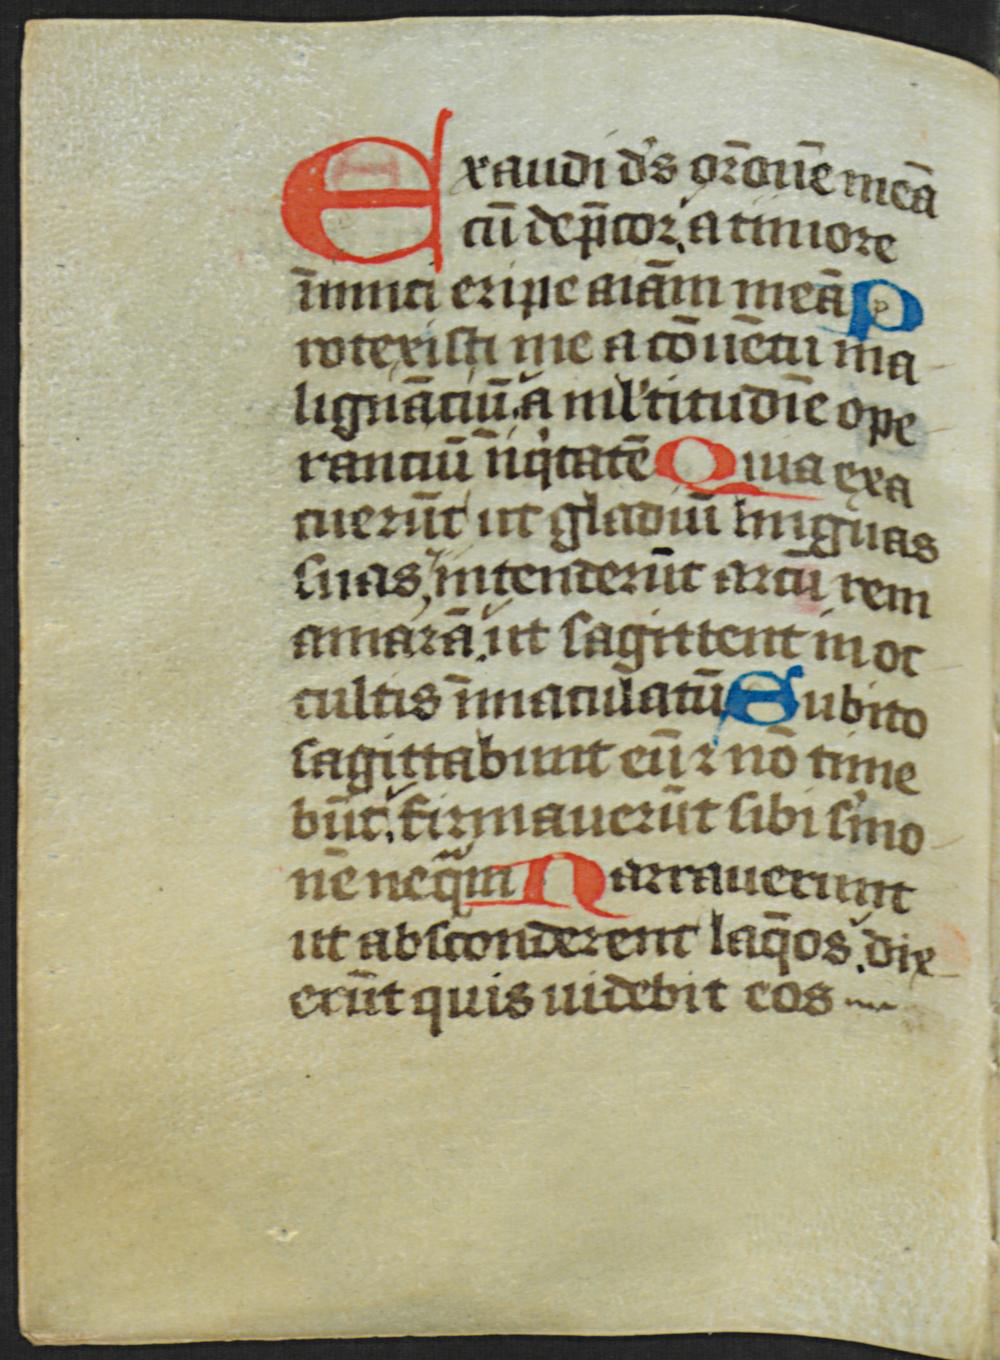 Exaudi d's or̄onē meā
cū dep̄cor, a timore
īimici eripe aīam meā P
rotexisti me a cōuētu ma
lignāciū, a ml'titudīe ope
ranciū īiq'tatē Quia exa
cuerūt ut gladiū linguas
suas, intenderūt arcū rem
amarā, ut sagittent in oc
cultis īmaculatū Subito
sagittabunt eū ⁊ nō time
būt, firmauerūt sibi s'mo
nē neq̄m Narrauerunt
ut absconderent laq̄os, dix
erūt quis uidebit eos